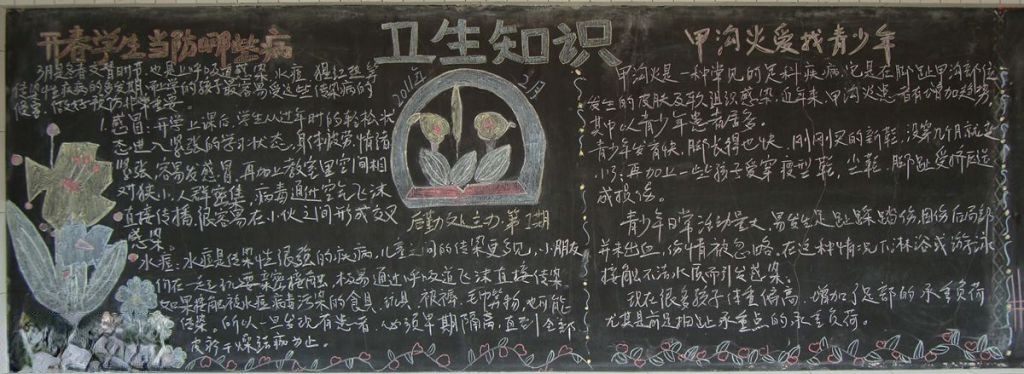 开春学生当防哪些病
3月是冬春交替的时节，也是上呼吸道感染、水痘、猩红热等
传染性疾病的高发期，而上学的孩子最容易受这些传染病的
侵害，做好预防非常重要。
1.感冒：开学上课后，学生从过年时的轻松状
态进入紧张的学习状态，身体疲劳，情绪
紧张，容易发感冒，再加上教室里空间相
对狭小，人群密集，病毒通过空气飞沫
直接传播，很容易在小伙之间形成交叉
感染。
水痘：水痘是传染性很强的疾病，儿童之间的传染更多见，小朋友
们在一起玩耍亲密接触，极易通过呼吸道飞沫直接传染
如果接触被水痘病毒污染的食具、玩具、被褥、毛巾等物，也可能
传染。所以一旦发现有患者，必须早期隔离，直到全部
皮疹干燥结痂为止。
卫生知识
2011年
2月
后勤处主办 第1期
甲沟炎爱找青少年
甲沟炎是一种常见的足科疾病，它是在脚趾甲沟部位
发生的皮肤及软组织感染，近年来，甲沟炎患者有增加趋势，
其中以青少年患者居多。
青少年发育快，脚长得也快，刚刚买的新鞋，没穿几个月就
小了，再加上一些孩子爱穿瘦型鞋、尖鞋，脚趾受挤压造
成损伤。
青少年日常活动量大，易发生足趾踩踏伤，因伤后局部
并未出血，伤情被忽略。在这种情况下淋浴或游泳
接触不洁水质而引发感染。
现在很多孩子体重偏高，增加了足部的承重负荷
尤其是前足拇趾承重点的承重负荷。